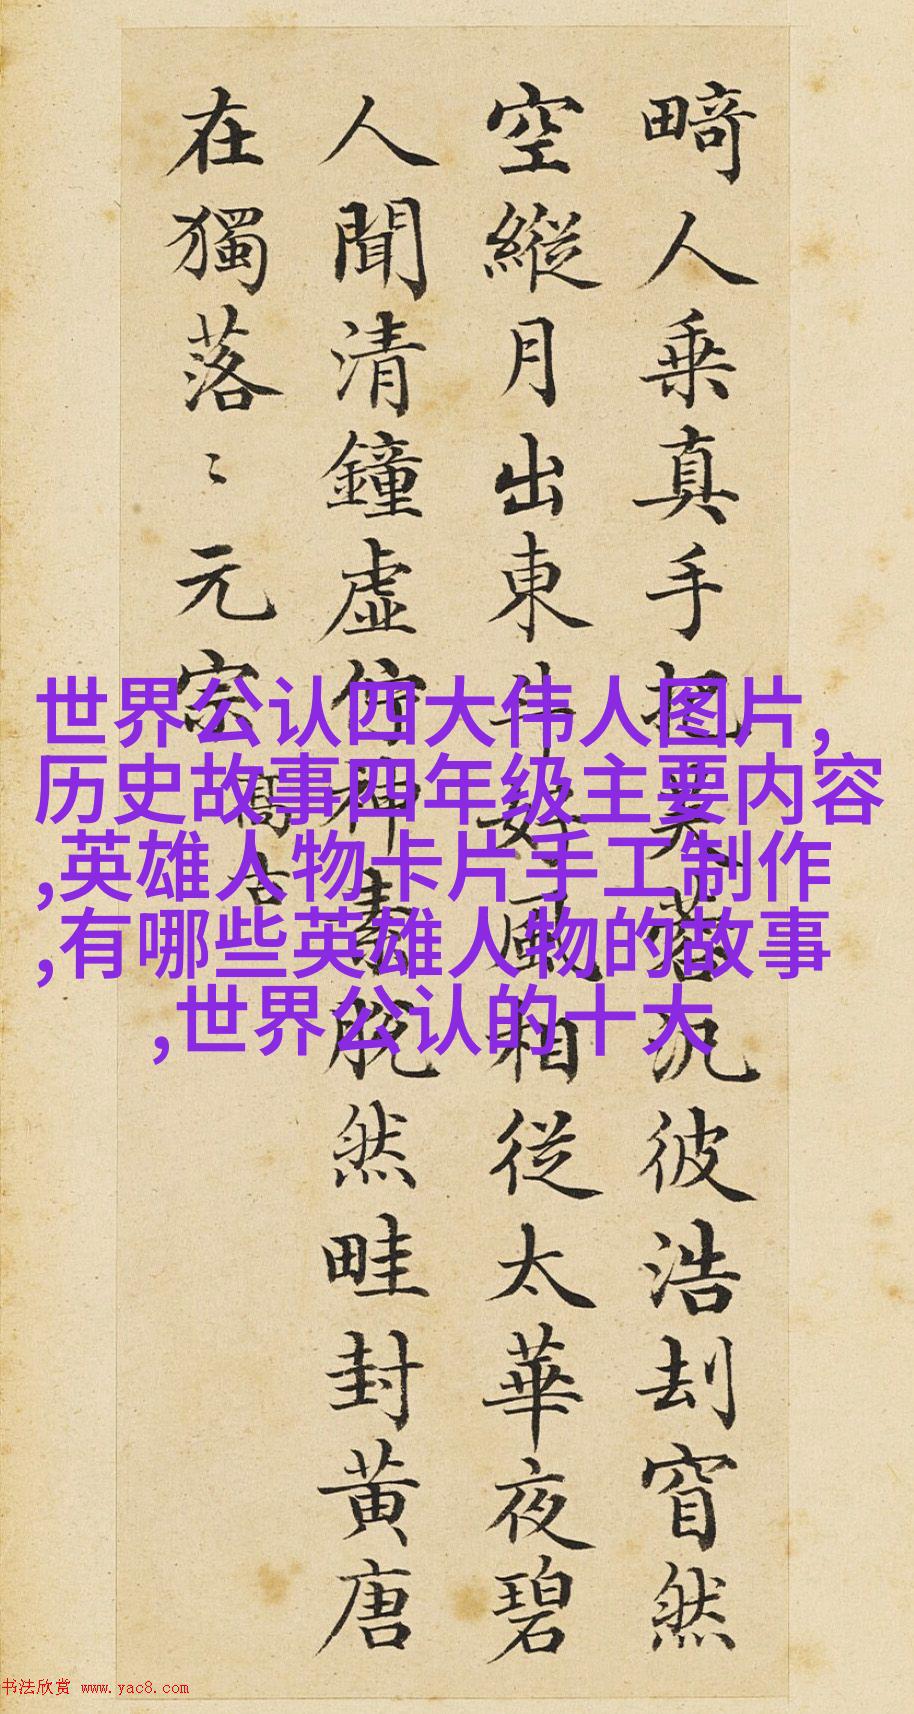 畸人乗真手把芙蓉汎彼浩刦窅然
空縱月出東斗好風相從太華夜碧
人聞清鐘虛佇神素脫然畦封黃唐
在獨落〻元宗
高古
世界公认四大伟人图片,
历史故事四年级主要内容
,英雄人物卡片手工制作
,有哪些英雄人物的故事
,世界公认的十大
书法欣赏 www.yac8.com